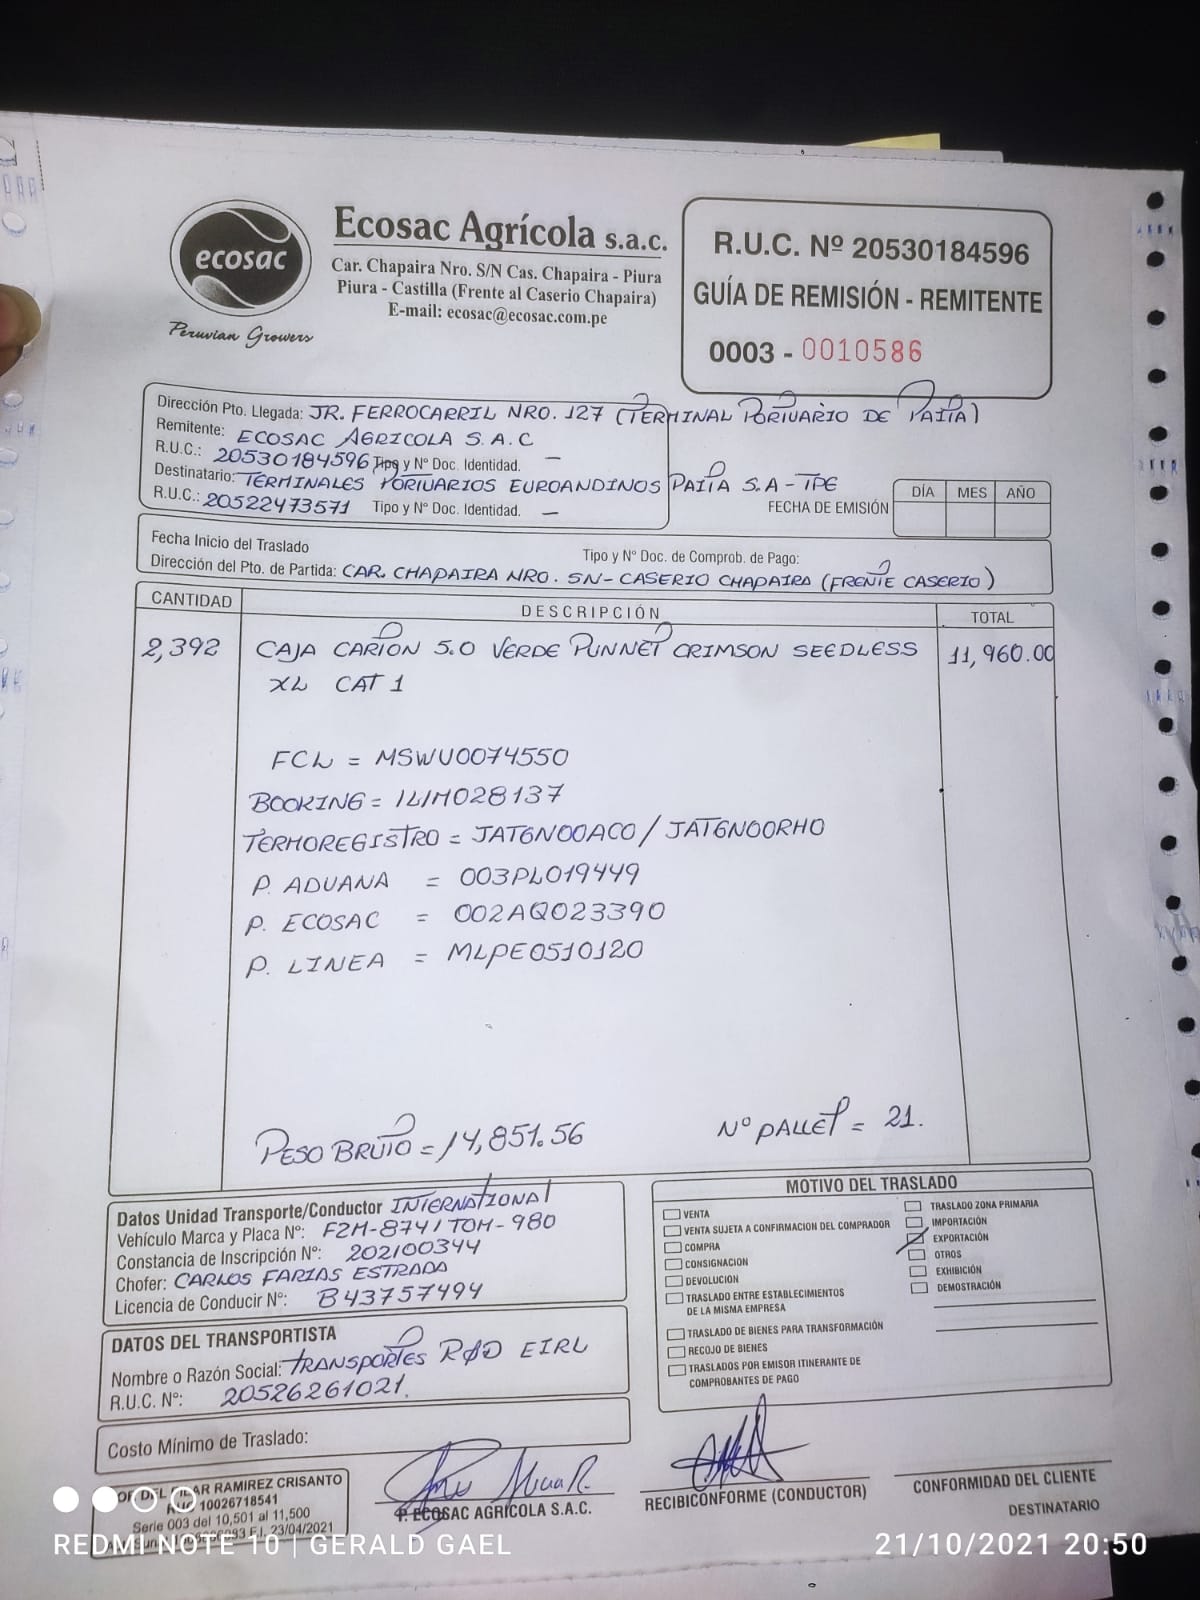 ecosac
Peruvian Growers
Ecosac Agrícola s.a.c.
Car. Chapaira Nro. S/N Cas. Chapaira - Piura
Piura - Castilla (Frente al Caserio Chapaira)
E-mail: ecosac@ecosac.com.pe
R.U.C. Nº 20530184596
GUÍA DE REMISIÓN - REMITENTE
0003 - 0010586
Dirección Pto. Llegada: JR. FERROCARRIL NRO. 127 (TERMINAL PORTUARIO DE PAITA)
Remitente: ECOSAC AGRICOLA S.A.C
R.U.C.: 20530184596 Tipo y Nº Doc. Identidad. —
Destinatario: TERMINALES PORTUARIOS EUROANDINOS PAITA S.A - TPE
R.U.C.: 20522473571 Tipo y Nº Doc. Identidad. —
FECHA DE EMISIÓN DÍA MES AÑO
Fecha Inicio del Traslado Tipo y Nº Doc. de Comprob. de Pago:
Dirección del Pto. de Partida: CAR. CHAPAIRA NRO. SN- CASERIO CHAPAIRA (FRENTE CASERIO)
CANTIDAD DESCRIPCIÓN TOTAL
2,392 CAJA CARTON 5.0 VERDE PUNNET CRIMSON SEEDLESS 11,960.00
XL CAT 1
FCL = MSWU0074550
BOOKING = ILIM028137
TERMOREGISTRO = JAT6N00AC0 / JAT6N00RH0
P. ADUANA = 003PL019449
P. ECOSAC = 002AQ023390
P. LINEA = MLPE0510120
PESO BRUTO = 14,851.56 Nº PALLET = 21.
Datos Unidad Transporte/Conductor INTERNATIONAL
Vehículo Marca y Placa Nº: F2M-874 / TOM-980
Constancia de Inscripción Nº: 202100344
Chofer: CARLOS FARIAS ESTRADA
Licencia de Conducir Nº: B43757494
DATOS DEL TRANSPORTISTA
Nombre o Razón Social: TRANSPORTES RØD EIRL
R.U.C. Nº: 20526261021.
Costo Mínimo de Traslado:
MOTIVO DEL TRASLADO
VENTA
VENTA SUJETA A CONFIRMACION DEL COMPRADOR
COMPRA
CONSIGNACION
DEVOLUCION
TRASLADO ENTRE ESTABLECIMIENTOS
DE LA MISMA EMPRESA
TRASLADO DE BIENES PARA TRANSFORMACIÓN
RECOJO DE BIENES
TRASLADOS POR EMISOR ITINERANTE DE
COMPROBANTES DE PAGO
TRASLADO ZONA PRIMARIA
IMPORTACIÓN
EXPORTACIÓN
OTROS
EXHIBICIÓN
DEMOSTRACIÓN
RAMIREZ CRISANTO
10026718541
Serie 003 del 10,501 al 11,500
F.I. 23/04/2021
P. ECOSAC AGRÍCOLA S.A.C.
RECIBICONFORME (CONDUCTOR)
CONFORMIDAD DEL CLIENTE
DESTINATARIO
REDMI NOTE 10 | GERALD GAEL
21/10/2021 20:50